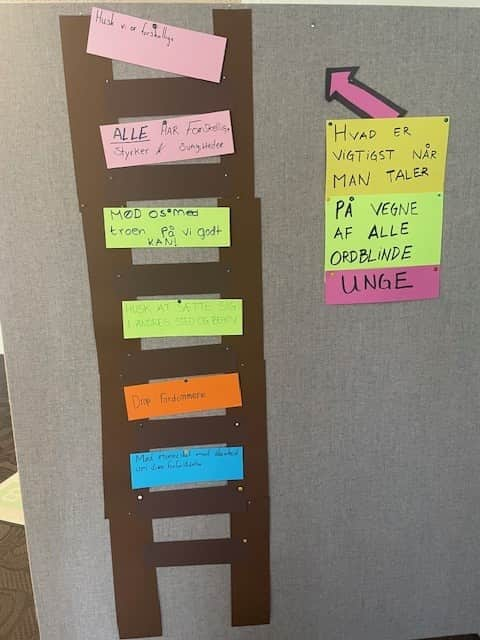 Husk vi er forskellige
ALLE HAR Forskellige
Styrker & Svagheder
MØD OS med
troen på vi godt
KAN!
HUSK AT SÆTTE SIG
I ANDRES STED OG BEHOV
Drop Fordommene
Mød mennesket med
om
HVAD ER
VIGTIGST NÅR
MAN TALER
PÅ VEGNE
AF ALLE
ORDBLINDE
UNGE